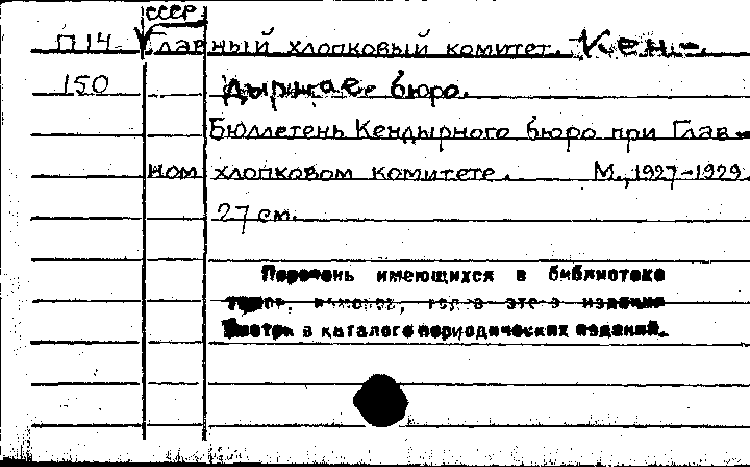 СССР
П14 Главный хлопковый комитет. Кен-
150 дырное бюро.
Бюллетень Кендырного бюро при Глав-
ном хлопковом комитете. М., 1927-1929.
27 см.
Перечень имеющихся в библиотеке
томов, номеров, годов этого издания
смотри в каталоге периодических изданий.